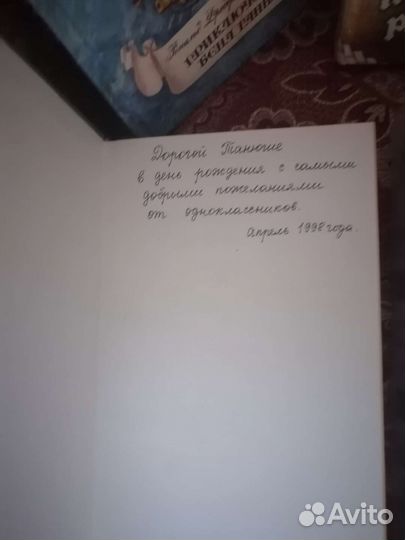 ПРИКЛЮЧ
БЕНА
Дорогой Танюше
в день рождения с самыми
добрыми пожеланиями
от однокласников.
Апрель 1998 года.
Avito